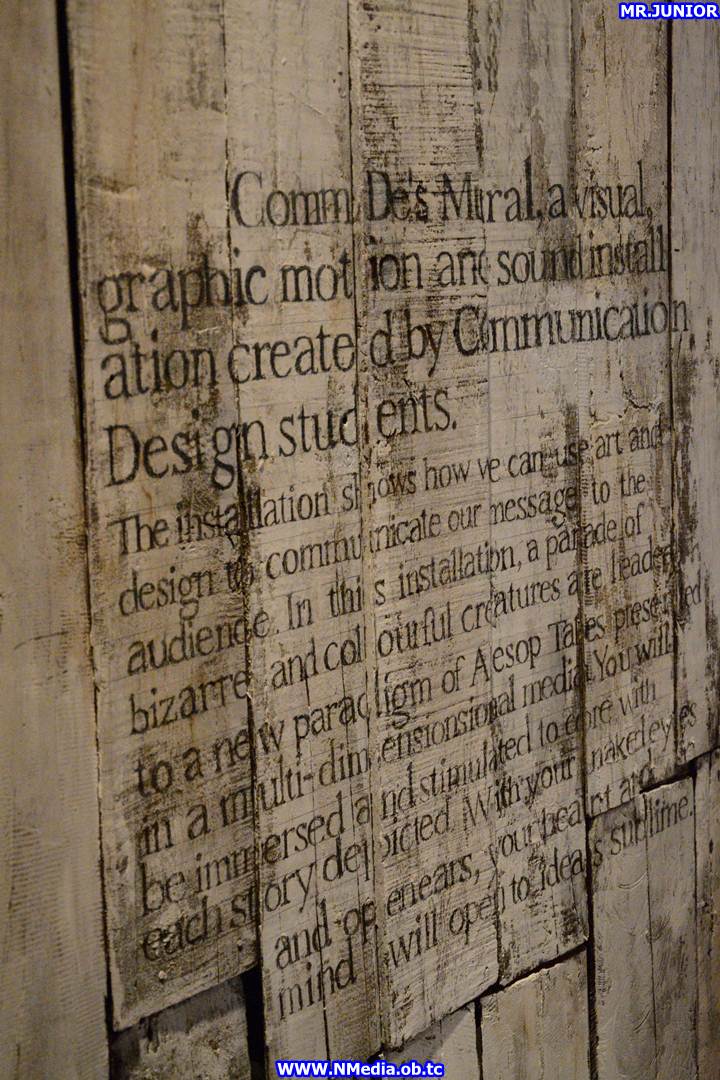 MR.JUNIOR
CommDe's Mural, a visual,
graphic motion and sound install
ation created by Communication
Design students.
The installation shows how we can use art and
design to communicate our message to the
audience. In this installation, a parade of
bizarre and colourful creatures are leaded
to a new paradigm of Aesop Tales presented
in a multi-dimensionsional media. You will
be immersed and stimulated to core with
each story depicted. With your naked eyes
and open ears, your heart and
mind will open to ideas sublime.
WWW.NMedia.ob.tc